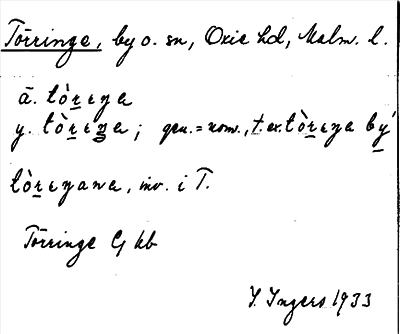 Törringe, by o. sn, Oxie hd, Malm. l.
ā. tòrɛŋa
y. tòrɛŋa; gen. = nom., t. ex. tòrɛŋa bý
tòrɛŋana, inv. i T.
Törringe G kb
I. Ingers 1933